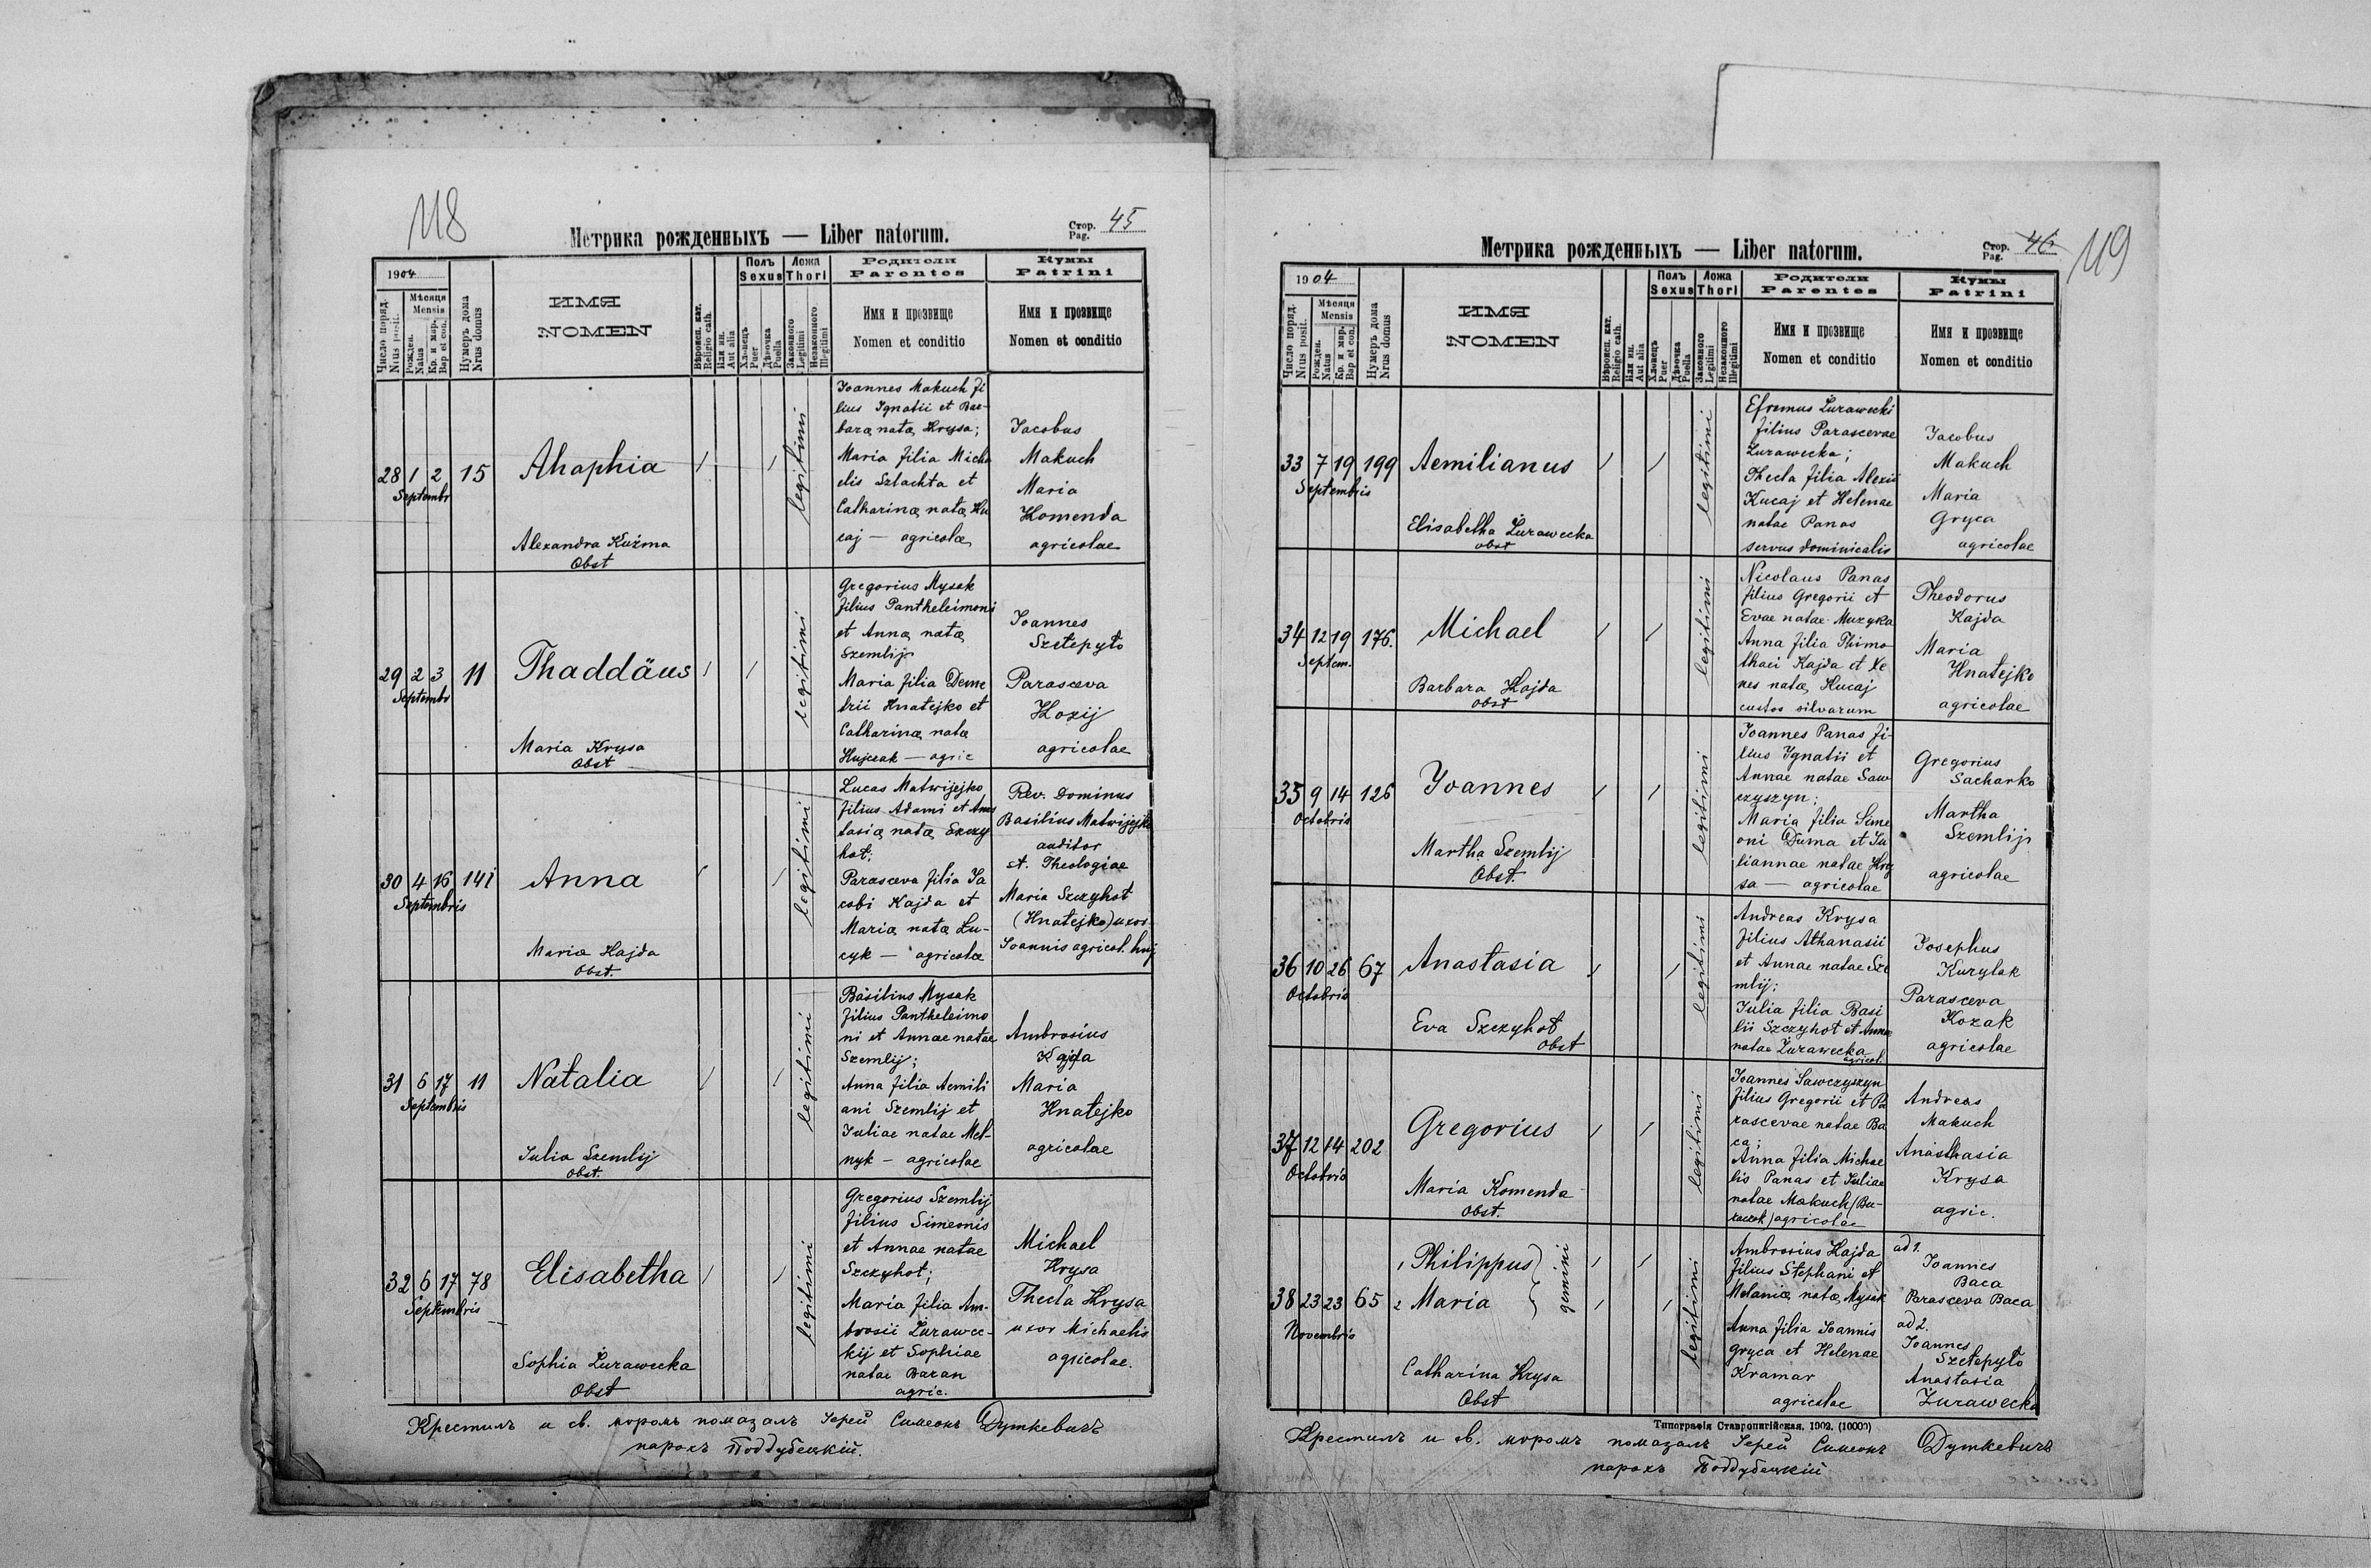 118
Метрика рожденныхъ — Liber natorum.
Стор. Pag. 45
1904
Число поряд. Nrus posit.
Мѣсяця Mensis
Рожден. Natus
Кр. и мѵр. Bap et con.
Нумеръ дома Nrus domus
ИМЯ
NOMEN
Вѣроисп. кат. Religio cath.
Или ин. Aut alia
Полъ Sexus
Хлопецъ Puer
Дѣвочка Puella
Ложа Thori
Законного Legitimi
Незаконного Illegitimi
Родители
Parentes
Имя и прозвище
Nomen et conditio
Кумы
Patrini
Имя и прозвище
Nomen et conditio
28 1 2 15
Septembr
Ahaphia
Alexandra Kuźma
Obst
legitimi
Joannes Makuch fi
lius Ignatii et Bar-
barę natę Krysa;
Maria filia Micha
elis Szlachta et
Catharinę natę Ku
caj — agricolę
Jacobus
Makuch
Maria
Komenda
agricolae
29 2 3 11
Septembr
Thaddäus
Maria Krysa
Obst
legitimi
Gregorius Mysak
filius Pantheleimoni
et Annę natę
Szemlij
Maria filia Deme
trii Hnatejko et
Catharinę natę
Hujczak — agric
Joannes
Szełepyło
Parasceva
Kozij
agricolae
30 4 16 141
Septembris
Anna
Maria Kajda
Obst.
legitimi
Lucas Matwijejko
filius Adami et Anas
tasię natę Szczy
hot;
Parasceva filia Ja
cobi Kajda et
Marię natę Łu-
cyk — agricolę
Rev. Dominus
Basilius Matwijejko
auditor
st. Theologiae
Maria Szczyhot
(Hnatejko) uxor
Joannis agricol. huj
31 6 17 11
Septembris
Natalia
Julia Szemlij
Obst.
legitimi
Basilius Mysak
filius Pantheleimo
ni et Annae natae
Szemlij;
Anna filia Aemili
ani Szemlij et
Juliae natae Mel-
nyk — agricolae
Ambrosius
Kajda
Maria
Hnatejko
agricolae
32 6 17 78
Septembris
Elisabetha
Sophia Żurawecka
Obst
legitimi
Gregorius Szemlij
filius Simeonis
et Annae natae
Szczyhot;
Maria filia Am-
brosii Żurawec-
kij et Sophiae
natae Baran
agric.
Michael
Krysa
Thecla Krysa
uxor Michaelis
agricolae.
Крестилъ и св. мѵромъ помазалъ Іерей Симеонъ Дуткевичъ
парохъ Поддубецкій.
119
Метрика рожденныхъ — Liber natorum.
Стор. Pag. 46
1904
Число поряд. Nrus posit.
Мѣсяця Mensis
Рожден. Natus
Кр. и мѵр. Bap et con.
Нумеръ дома Nrus domus
ИМЯ
NOMEN
Вѣроисп. кат. Religio cath.
Или ин. Aut alia
Полъ Sexus
Хлопецъ Puer
Дѣвочка Puella
Ложа Thori
Законного Legitimi
Незаконного Illegitimi
Родители
Parentes
Имя и прозвище
Nomen et conditio
Кумы
Patrini
Имя и прозвище
Nomen et conditio
33 7 19 199
Septembris
Aemilianus
Elisabetha Żurawecka
obst
legitimi
Efremus Żurawecki
filius Parascevae
Żurawecka;
Thecla filia Alexii
Kucaj et Helenae
natae Panas
servus dominicalis
Jacobus
Makuch
Maria
Gryca
agricolae
34 12 19 176.
Septem.
Michael
Barbara Kajda
obst
legitimi
Nicolaus Panas
filius Gregorii et
Evae natae Muzyka
Anna filia Thimo
thaei Kajda et Xe
nes natę Kucaj
custos silvarum
Theodorus
Kajda
Maria
Hnatejko
agricolae
35 9 14 126
Octobris
Joannes
Martha Szemlij
Obst.
legitimi
Joannes Panas fi-
lius Ignatii et
Annae natae Saw
czyszyn;
Maria filia Sime
oni Duma et Ju
liannae natae Kry
sa — agricolae
Gregorius
Sacharko
Martha
Szemlij
agricolae
36 10 26 67
Octobris
Anastasia
Eva Szczyhot
Obst
legitimi
Andreas Krysa
filius Athanasii
et Annae natae Sze
mlij;
Julia filia Basi
lii Szczyhot et Annae
natae Żurawecka
agricol.
Josephus
Kurylak
Parasceva
Kozak
agricolae
37 12 14 202
Octobris
Gregorius
Maria Komenda
Obst.
legitimi
Joannes Sawczyszyn
filius Gregorii et Pa
rascevae natae Ba
ca;
Anna filia Michae
lis Panas et Juliae
natae Makuch
agricolae
Andreas
Makuch
Anasthasia
Krysa
agric.
38 23 23 65
Novembris
1 Philippus
2 Maria
gemini
Catharina Krysa
Obst
legitimi
Ambrosius Kajda
filius Stephani et
Melanię natę Mysak
Anna filia Joannis
Gryca et Helenae
Kramar
agricolae
ad 1.
Joannes
Baca
Parasceva Baca
ad 2.
Joannes
Szełepyło
Anastasia
Żurawecka
Типографія Ставропигійская. 1902. (10000)
Крестилъ и св. мѵромъ помазалъ Іерей Симеонъ Дуткевичъ
парохъ Поддубецкій